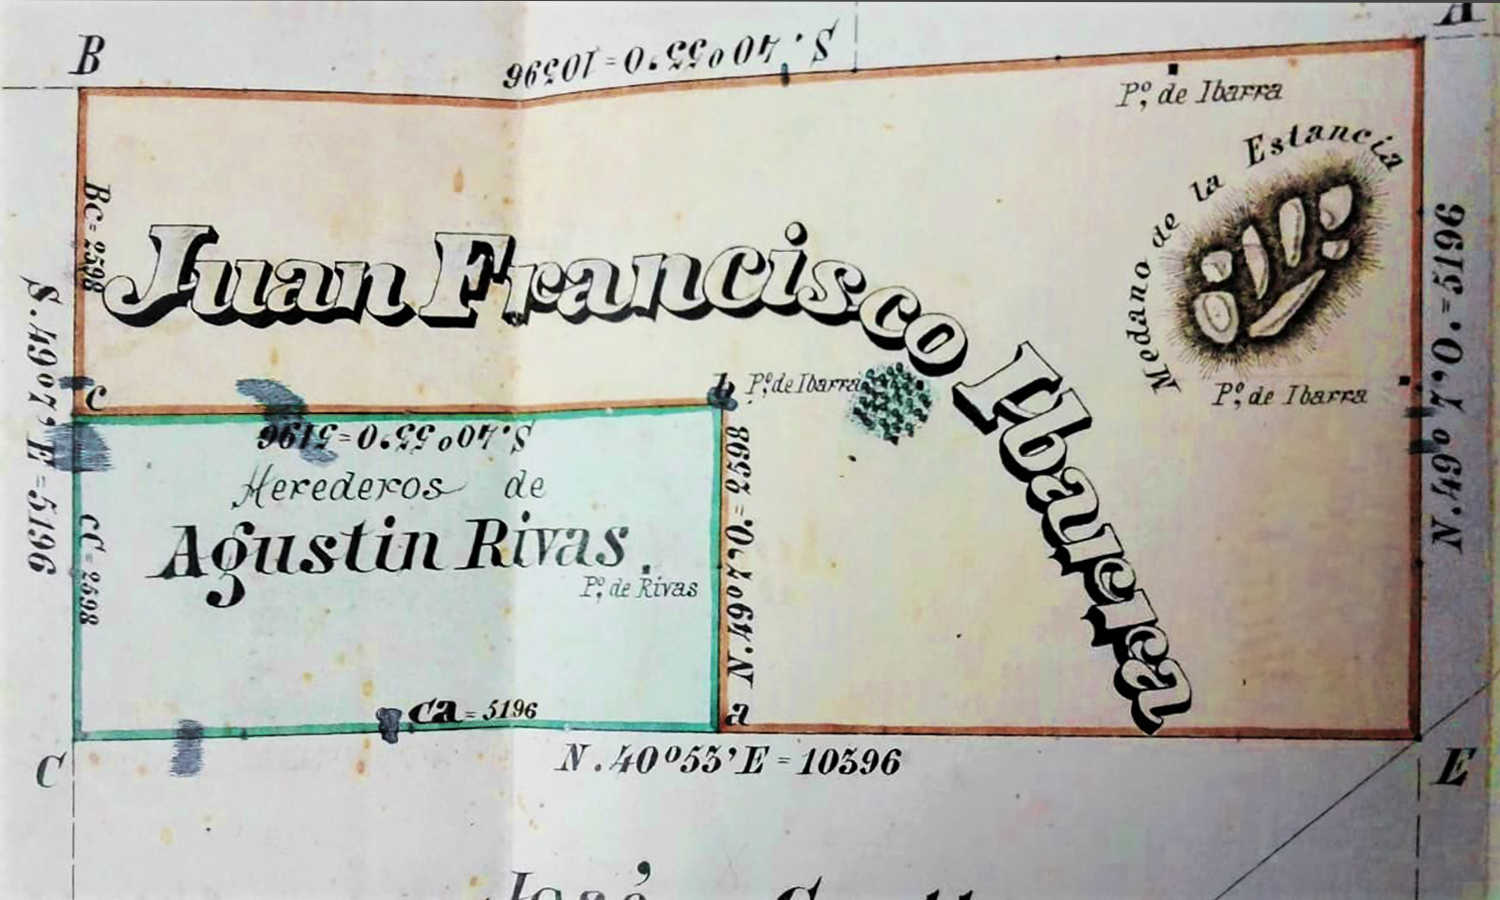 A
B
S. 40º55'O = 10396
Pº, de Ibarra
Medano de la Estancia
Bc = 2598
Juan Francisco Ibarra
S. 49º7'E = 5196
N. 49º7'O. = 5196
c
b
Pº, de Ibarra
Pº, de Ibarra
S. 40º55'O = 5196
Herederos de
Agustin Rivas
Pº, de Rivas
cC = 2598
N. 49º7'O. = 2598
Ca = 5196
a
C
N. 40º53'E = 10396
E
José